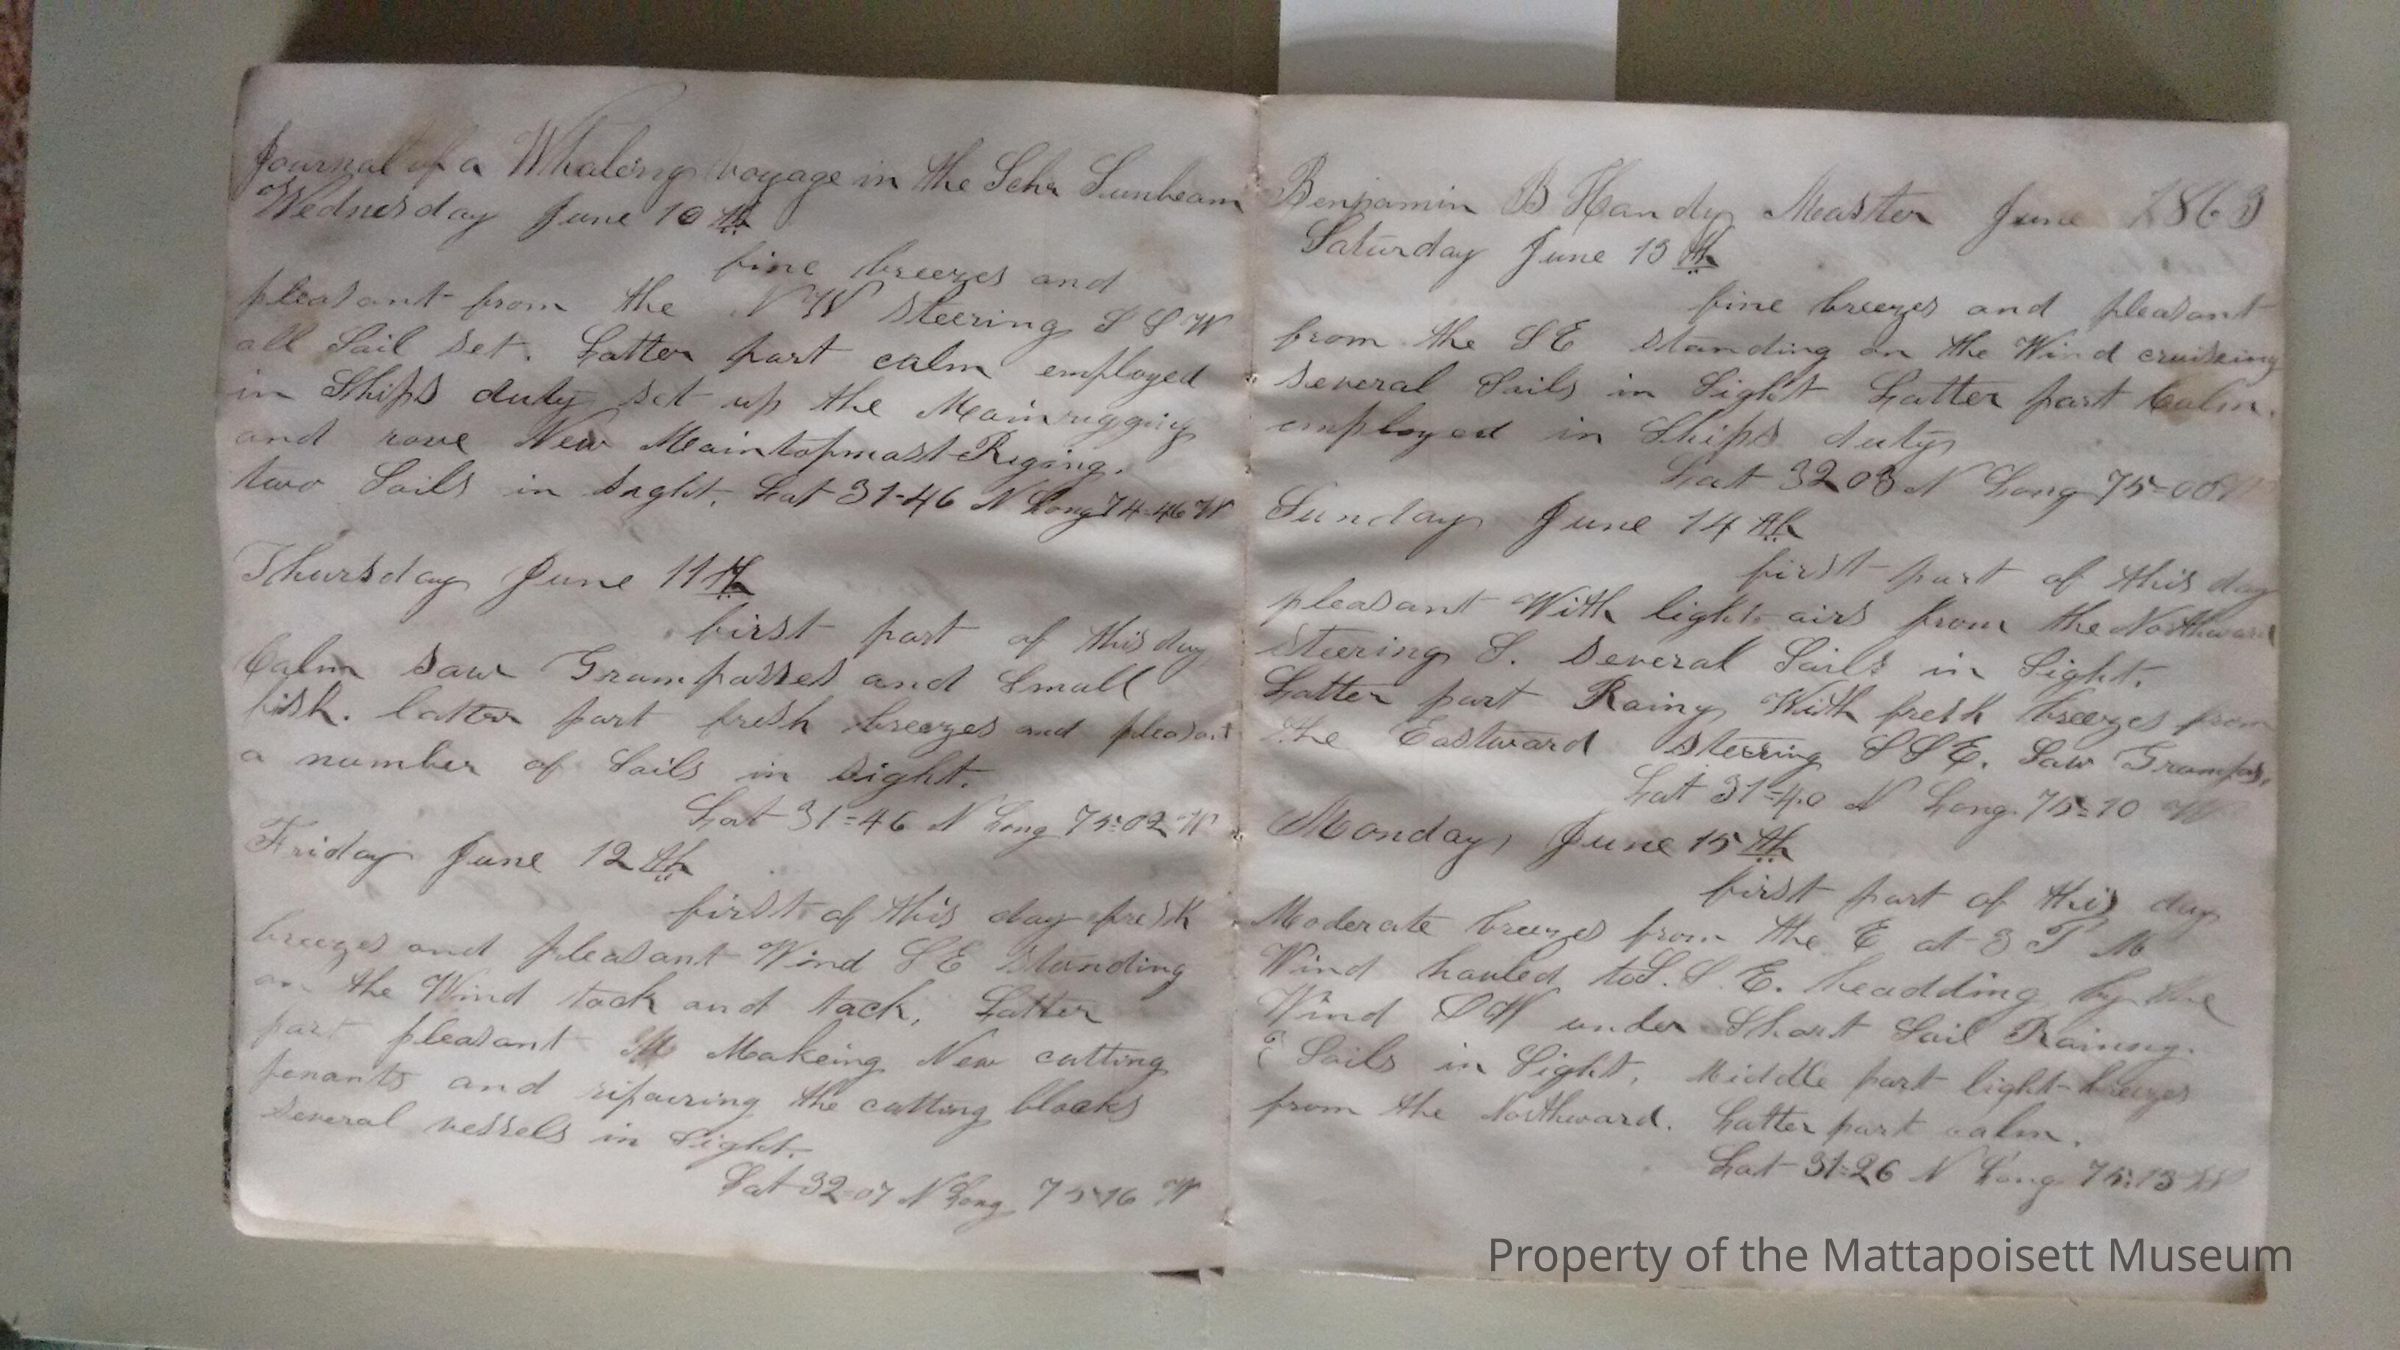 Journal of a Whaleing voyage in the Schr Sunbeam
Wednesday June 10th
fine breezes and
pleasant from the NW steering SSW
all Sail set. Latter part calm employed
in Ships duty set up the Mainrigging
and rove New Maintopmast Riging.
two Sails in sight. Lat 31-46 N Long 74-46 W
Thursday June 11th
first part of this day
Calm saw Grampasses and Small
fish. latter part fresh breezes and pleasant
a number of Sails in sight.
Lat 31=46 N Long 75=02 W
Friday June 12th
first of this day fresk
breezes and pleasant Wind SE standing
on the Wind tack and tack. Latter
part pleasant M Makeing New cutting
penants and ripairing the cutting blocks
several vessels in Sight.
Lat 32=07 N Long 75-16 W
Benjamin B Handy Master June 1863
Saturday June 13th
fine breezes and pleasant
from the SE standing on the Wind cruiseing
several Sails in Sight Latter part Calm.
employed in Ships duty
Lat 32 03 N Long 75=00 W
Sunday June 14th
first part of this day
pleasant With light airs from the Northward
steering S. several Sails in Sight.
Latter part Rainy With fresk breezes from
the Eastward steering SSE. Saw Grampas.
Lat 31=40 N Long. 75=10 W
Monday, June 15th
first part of this day
Moderate breezes from the E at 3 P M
Wind hauled to S. S. E. headding by the
Wind SW under Short Sail Rainy.
Sails in Sight. Middle part light breezes
from the Northward. Latter part calm.
Lat 31=26 N Long 75=13 W
Property of the Mattapoisett Museum